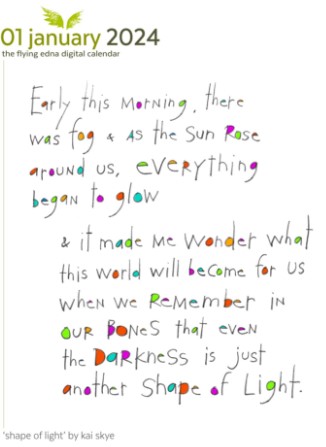 01 january 2024
the flying edna digital calendar
Early this Morning, there
was fog & as the Sun Rose
around us, everything
began to glow
& it made Me wonder what
this world will become for us
when we ReMeMber in
our Bones that even
the Darkness is just
another Shape of Light.
'shape of light' by kai skye